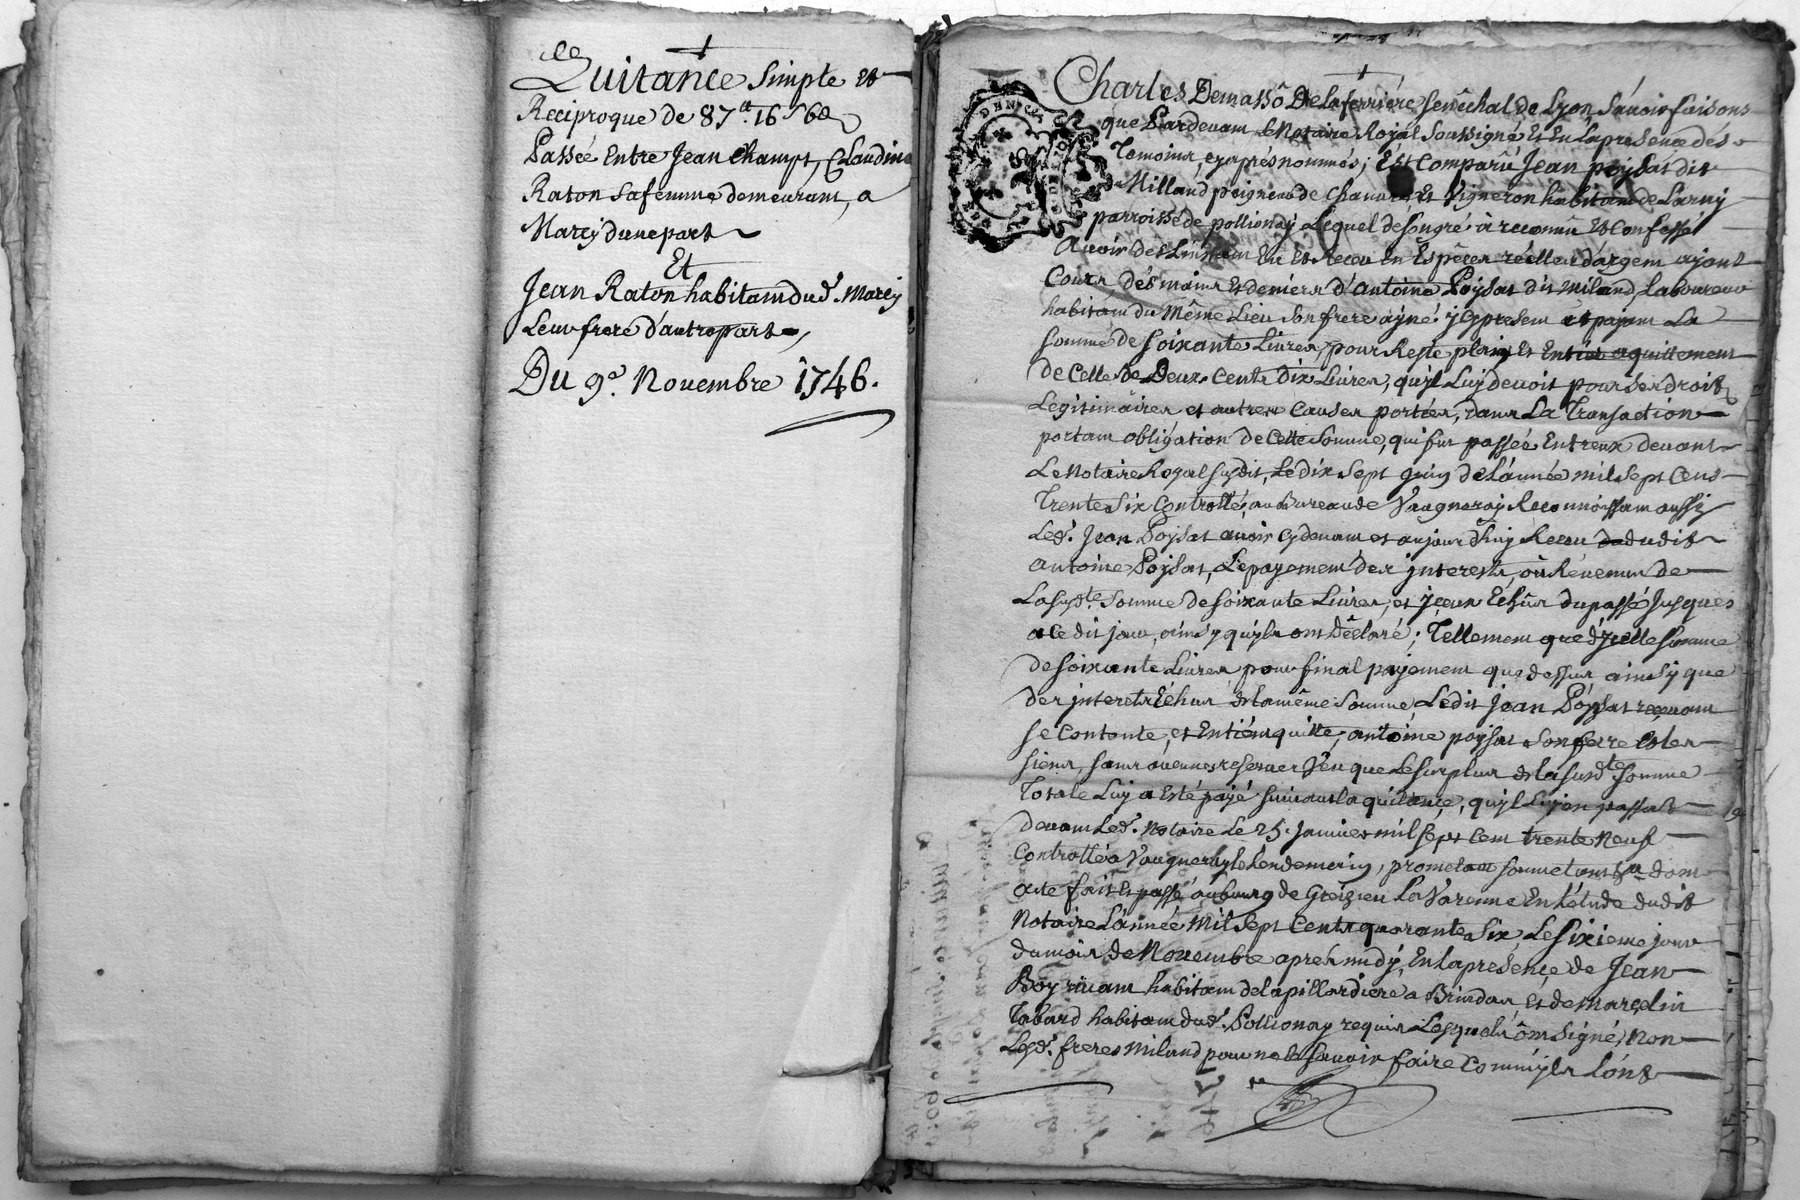 Quitance Simple et
Reciproque de 87ᵗᵗ 16 s 6 d
Passée Entre Jean Champt, Claudine
Raton sa femme demeurant, a
Marcy d'une part
Et
Jean Raton habitant dud. Marcy
Leur frere d'autre part
Du 9e. Novembre 1746.
Charles Demassô Delaferrière senéchal de Lyon, Sávoir faisons
que Pardevant le Notaire Royal Soussigné Et En La presence des
Temoins cy aprés nommés; Est Comparû Jean poysat dit
Milland peigneur de Chanvre et Vigneron habitant de Larny
parroisse de pollionay Lequel de son gré à reconnû Et Confessé
Avoir des L'instant Eu Et Receu en Espêces réelles d'argent ayant
Cours dés mains et deniers d'antoine Poysat dit miland, laboureur
habitant du Même Lieu son frere ayné. y cy present et payant La
somme de soixante Livres, pour Reste, plain Et Entier aquittement
de Celle de Deux Cents dix Livres, qu'yl Luy devoit pour ses droits
Legitimaires et autres Causes portées, dans La Transaction
portant obligation de Cette Somme, qui fut passée Entreux devant
Le Notaire Royal susdit, Le dix sept juin de L'année mil sept Cens
Trente Six Controllé, au Bureau de Vaugneray Reconnoissant aussi
Led. Jean Poysat avoir cy devant et aujourd'huy Receu dudit
antoine Poysat, Le payement des interests, où Revenus de
La susd.te Somme de soixante Livres, et yceux Echûs du passé Jusques
a Ce dit jour, ainsy qu'yls ont Déclaré; Tellement que d'ycelle somme
de soixante Livres pour final payement que dessus ainsy que
des interets Echus de la même somme, Ledit Jean Poysat
se Contente, et Entient quitte, antoine poysat son frere et les
siens, sans aucunes reserver Veu que Le surplus de la susd.te somme
Totale Luy a Esté payé suivant la quitance, qu'yl Luy en passat
devant Led. Notaire Le 25. Janvier mil sept Cent trente Neuf
Controllé a Vaugneray Le Lendemain, promettant soumettant &a dont
acte fait Et passé au bourg de Greizieu La Varenne En L'étude dudit
Notaire L'année Mil Sept Cents quarante Six, Le Sixieme jour
du mois de Novembre aprés midy, En la presence de Jean
habitant de la pillardiere a Brindas et de marcelin
Tabard habitant dud. Pollionay requis Lesquels ônt Signé, Non
Lesd. freres miland pour ne le sçavoir faire Comm'yls L'ont